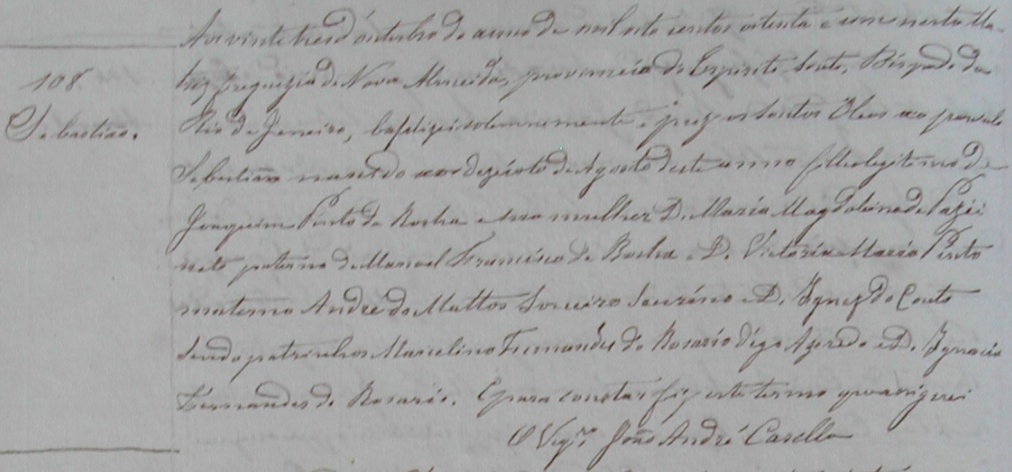 Aos vinte tres d'outubro do anno de mil oito centos oitenta e um nesta Ma-
108
triz freguezia de Nova Almeida, provincia do Espirito Santo, Bispado do
Sebastião.
Rio de Janeiro, baptizei solemnemente e puz os santos Oleos ao parvulo
Sebastião nascido aos dezioito de Agosto deste anno filho legitimo de
Joaquim Pinto da Rocha e sua mulher D. Maria Magdalena de
neto paterno de Manoel Francisco da Rocha e D. Victoria Maria Pinto
materno André de Mattos Loureiro e D. Ignez do Couto
Sendo padrinhos Marcelino Fernandes do Rosario digo Azeredo e D. Ignacia
Fernandes do Rosario. E para constar fiz este termo que assignei
O Vigr.º João André Casella